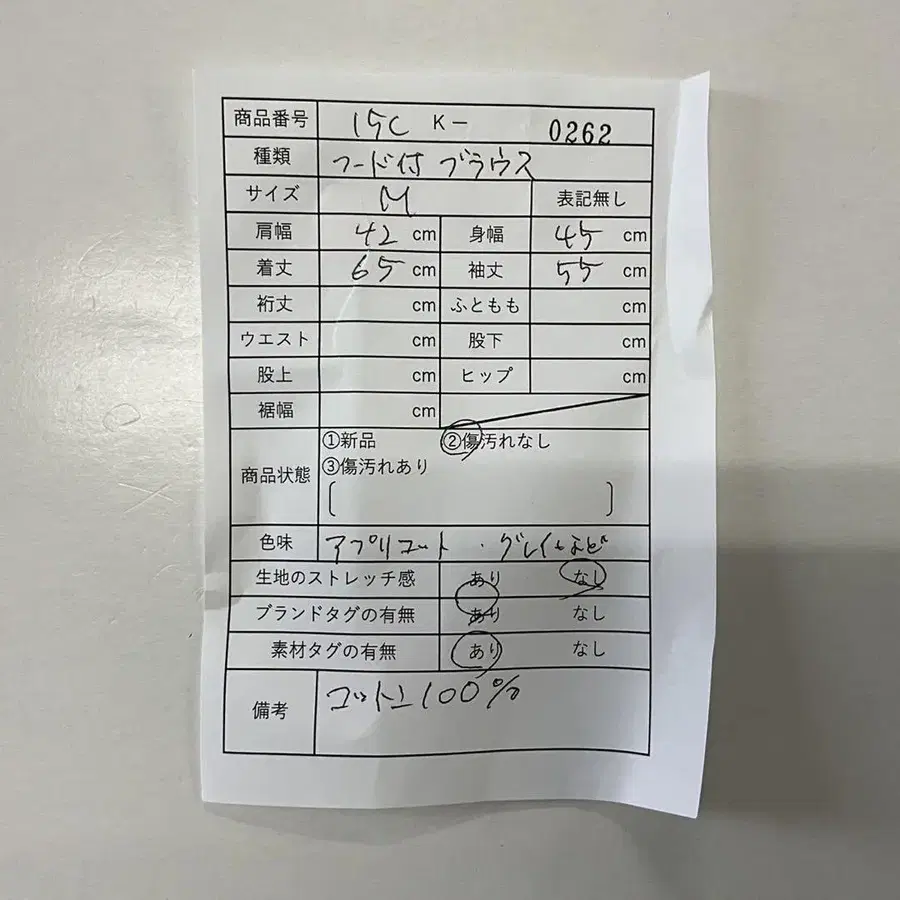 商品番号 15C K- 0262
種類 フード付 ブラウス
サイズ M 表記無し
肩幅 42 cm 身幅 45 cm
着丈 65 cm 袖丈 55 cm
裄丈 cm ふともも cm
ウエスト cm 股下 cm
股上 cm ヒップ cm
裾幅 cm
商品状態 ①新品 ②傷汚れなし
③傷汚れあり
色味 アプリコット ・グレイなど
生地のストレッチ感 あり なし
ブランドタグの有無 あり なし
素材タグの有無 あり なし
備考 コットン100%